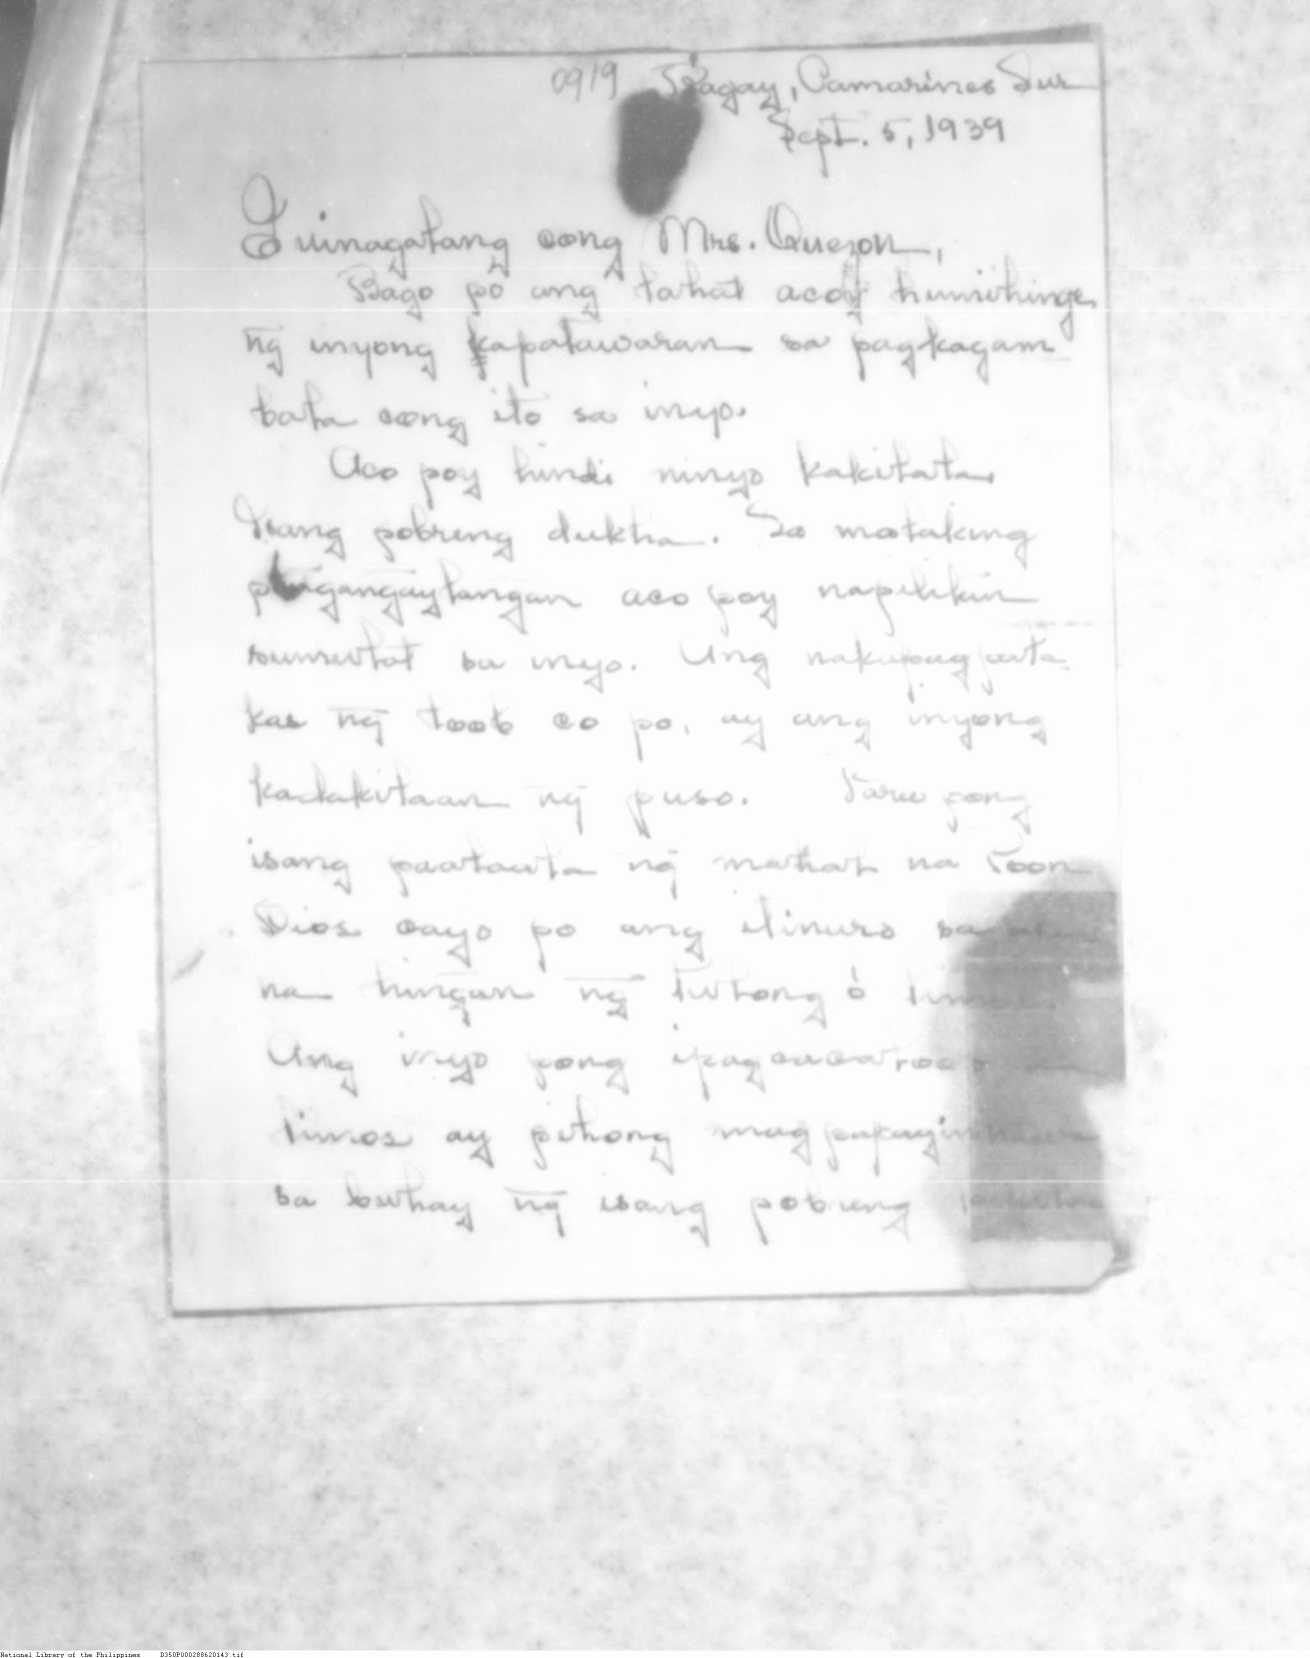 0919 Ragay, Camarines Sur
Sept. 5, 1939
Guinagalang cong Mrs. Quezon,
Bago po ang lahat aco'y humihinge
ng inyong kapatawaran sa pagkagam
bala cong ito sa inyo.
Aco poy hindi ninyo kakilala
isang pobreng dukha. Sa malaking
pangangaylangan aco poy napilitan
sumulat sa inyo. Ang nakapagpala
kas ng loob co po, ay ang inyong
kadakilaan ng puso. Para pong
isang paatawla ng mahal na Poon
Dios cayo po ang itinuro sa
na hingan ng tulong ó limos.
Ang inyo pong ipagcacaroob
limos ay pihong magpapayinhawa
sa buhay ng isang pobreng
National Library of the Philippines D350P000288620143.tif